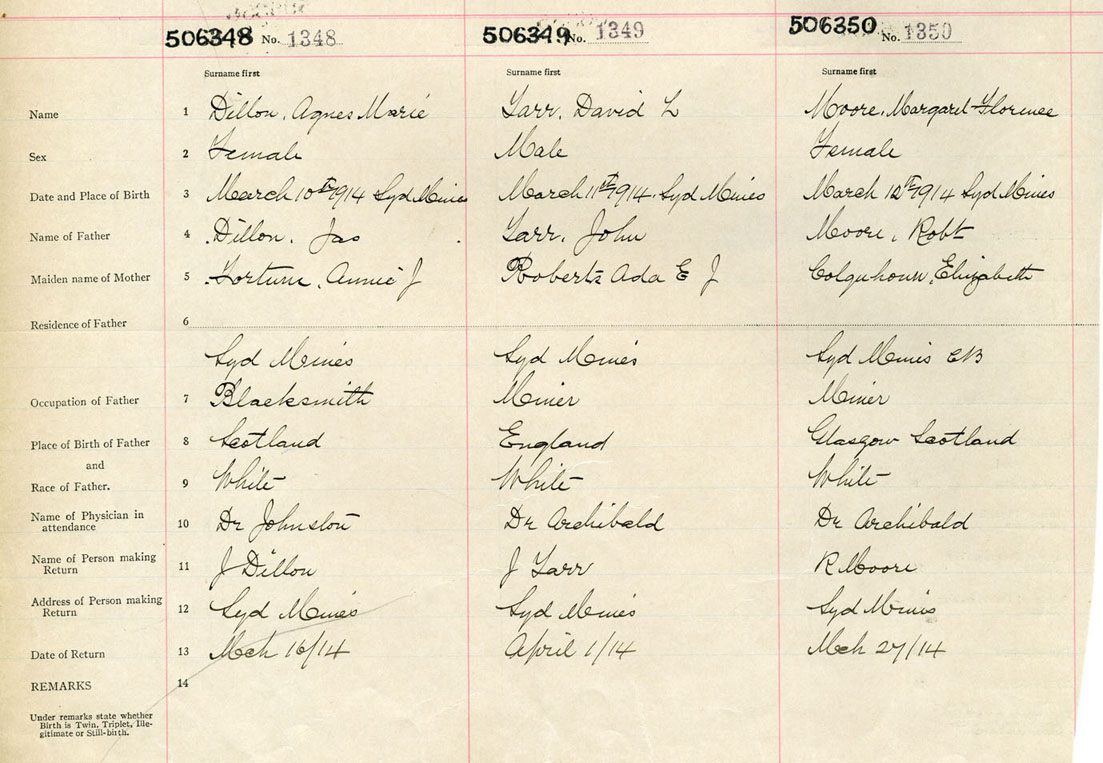 506348 No. 1348 506349 No. 1349 506350 No. 1350
Surname first Surname first Surname first
Name 1 Dillon, Agnes Marie Tarr, David L Moore, Margaret Florence
Sex 2 Female Male Female
Date and Place of Birth 3 March 10th 1914 Syd Mines March 11th 1914. Syd Mines March 12th 1914 Syd Mines
Name of Father 4 Dillon, Jas Tarr, John Moore, Robt
Maiden name of Mother 5 Annie J Roberts Ada E J Colquhoun, Elizabeth
Residence of Father 6
Syd Mines Syd Mines Syd Mines CB
Occupation of Father 7 Blacksmith Miner Miner
Place of Birth of Father 8 Scotland England Glasgow Scotland
and
Race of Father. 9 White White White
Name of Physician in
attendance 10 Dr Johnston Dr Archibald Dr Archibald
Name of Person making
Return 11 J Dillon J Tarr R Moore
Address of Person making
Return 12 Syd Mines Syd Mines Syd Mines
Date of Return 13 Mch 16/14 April 1/14 Mch 27/14
REMARKS 14
Under remarks state whether
Birth is Twin, Triplet, Ille-
gitimate or Still-birth.